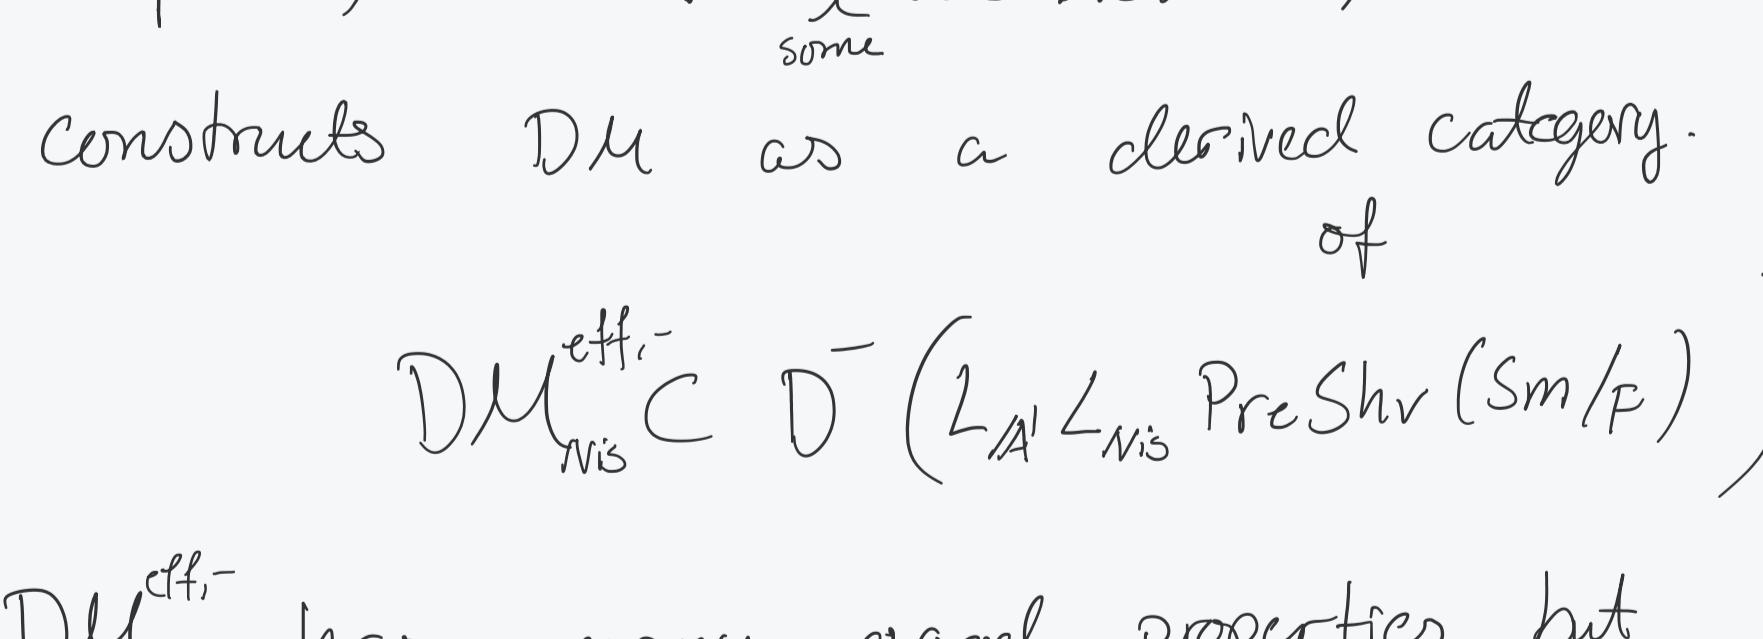 some
constructs DM as a derived category.
of
DM^{eff,-}_{Nis} ⊂ D^- (L_{A^1} L_{Nis} PreShv (Sm/F))
DM^{eff,-} has many good properties but